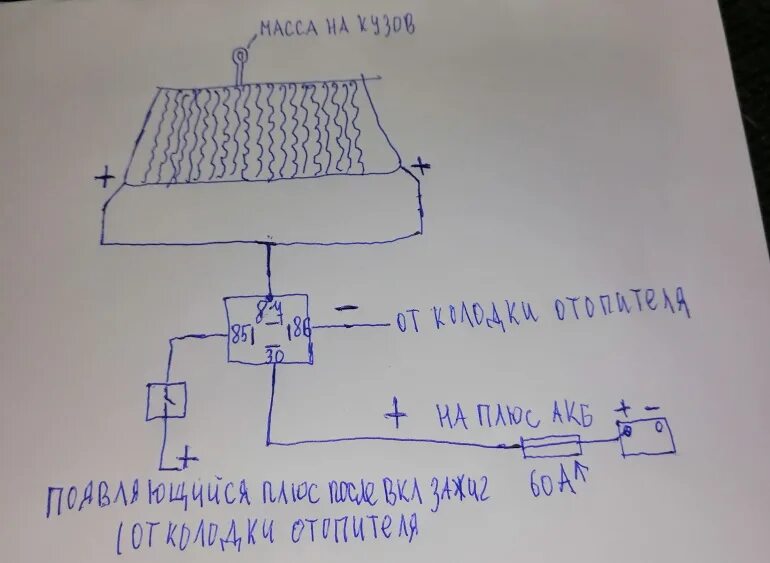 МАССА НА КУЗОВ
+ +
87
85 86
30
−
ОТ КОЛОДКИ ОТОПИТЕЛЯ
+ НА ПЛЮС АКБ + −
60А
+
ПОЯВЛЯЮЩИЙСЯ ПЛЮС ПОСЛЕ ВКЛ ЗАЖИГ
(ОТ КОЛОДКИ ОТОПИТЕЛЯ